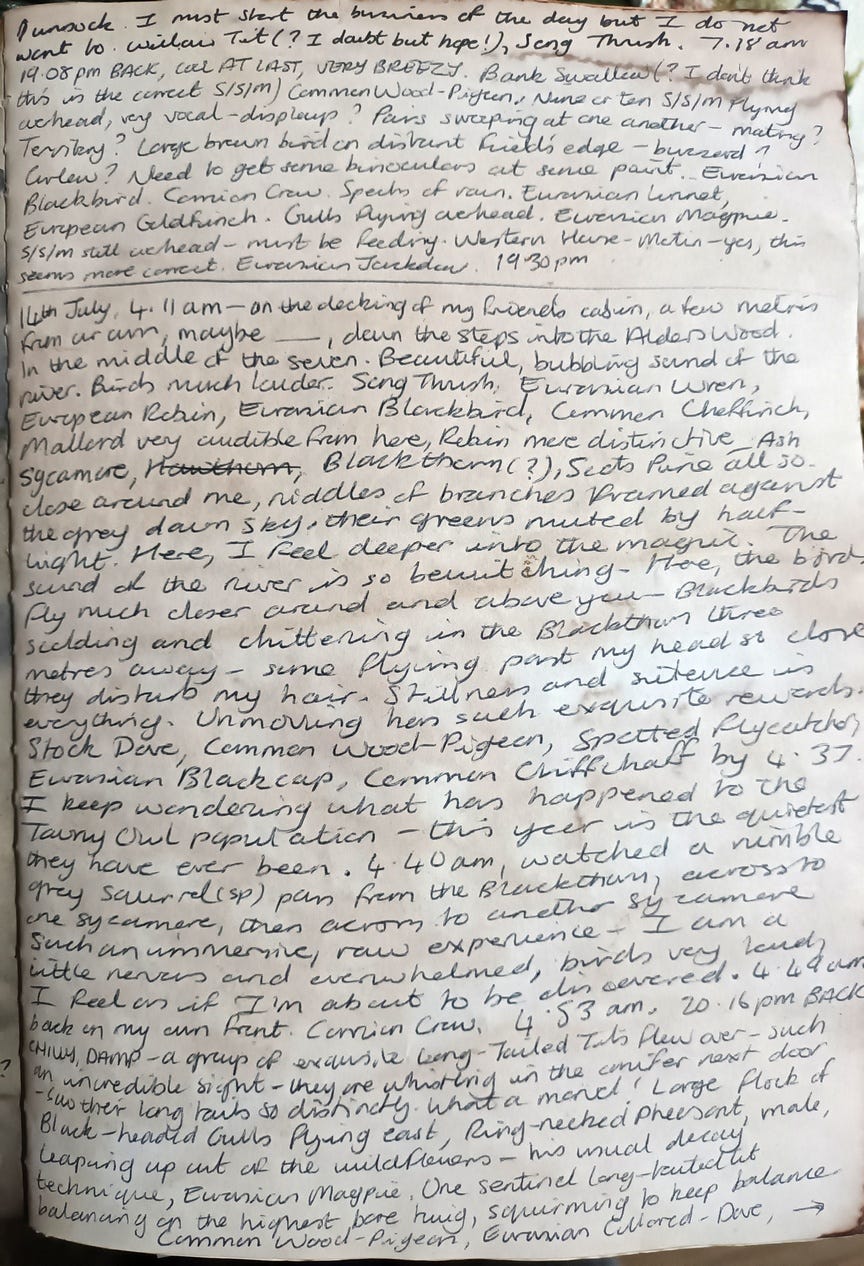 Dunnock. I must start the business of the day but I do not
want to. Willow Tit (? I doubt but hope!), Song Thrush. 7.18 am
19.08pm BACK, COOL AT LAST, VERY BREEZY. Bank Swallow (? I don't think
this is the correct S/S/M) Common Wood-Pigeon, Nine or ten S/S/M flying
overhead, very vocal - displays? Pairs swooping at one another - mating?
Territory? Large brown bird on distant field's edge - buzzard?
Curlew? Need to get some binoculars at some point. Eurasian
Blackbird. Carrion Crow. Specks of rain. Eurasian Linnet,
European Goldfinch. Gulls flying overhead. Eurasian Magpie.
S/S/M still overhead - must be feeding. Western House-Martin - yes, this
seems more correct. Eurasian Jackdaw. 19.30pm
14th July, 4.11am - on the decking of my friend's cabin, a few metres
from our own, maybe ___, down the steps into the Alders Wood.
In the middle of the seven. Beautiful, bubbling sound of the
river. Birds much louder. Song Thrush, Eurasian Wren,
European Robin, Eurasian Blackbird, Common Chaffinch,
Mallard very audible from here, Robin more distinctive. Ash
Sycamore, Hawthorn, Blackthorn (?), Scots Pine all so
close around me, riddles of branches framed against
the grey dawn sky, their greens muted by half-
light. Here, I feel deeper into the magic. The
sound of the river is so bewitching - Here, the birds
fly much closer around and above you - Blackbirds
scolding and chittering in the Blackthorn three
metres away - some flying past my head so close
they disturb my hair. Stillness and silence is
everything. Unmoving has such exquisite rewards.
Stock Dove, Common Wood-Pigeon, Spotted Flycatcher,
Eurasian Blackcap, Common Chiffchaff by 4.37.
I keep wondering what has happened to the
Tawny Owl population - this year is the quietest
they have ever been. 4.40am, watched a nimble
grey squirrel (sp) pass from the Blackthorn, across to
one sycamore, then across to another sycamore
Such an immersive, raw experience - I am a
little nervous and overwhelmed, birds very loud,
I feel as if I'm about to be discovered. 4.49am
back on my own front. Carrion Crow. 4.53 am. 20.16pm BACK
CHILLY, DAMP - a group of exquisite Long-Tailed Tits flew over - such
?
an incredible sight - they are whistling in the conifer next door
- saw their long tails so distinctly. What a marvel! Large flock of
Black-headed Gulls flying east, Ring-necked Pheasant, male,
leaping up out of the wildflowers - his usual decoy
technique, Eurasian Magpie. One sentinel long-tailed tit
balancing on the highest bare twig, squirming to keep balance
Common Wood-Pigeon, Eurasian Collared-Dove, →